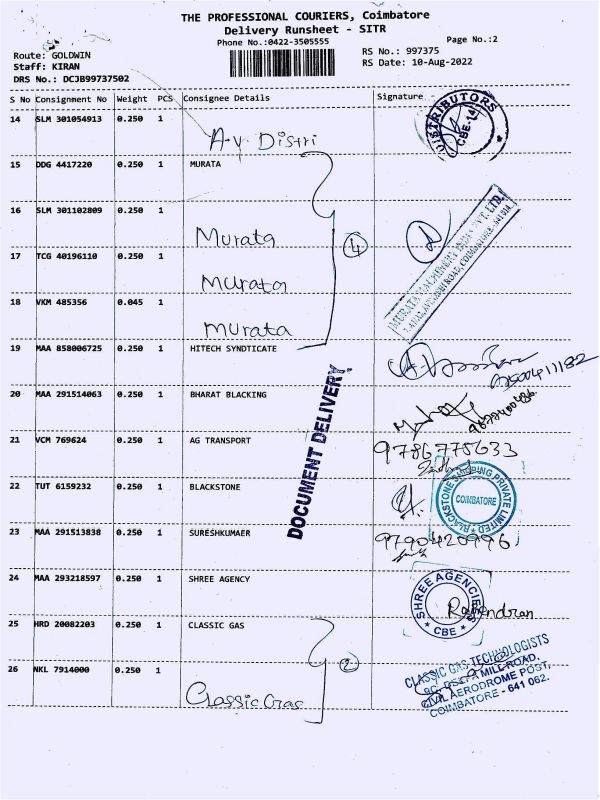 THE PROFESSIONAL COURIERS, Coimbatore
Delivery Runsheet - SITR
Phone No.:0422-3505555
Page No.:2
Route: GOLDWIN
Staff: KIRAN
DRS No.: DCJB99737502
RS No.: 997375
RS Date: 10-Aug-2022
S No Consignment No Weight PCS Consignee Details Signature
14 SLM 301054913 0.250 1
A.v. Distri
DISTRIBUTORS
CBE-14
15 DDG 4417220 0.250 1 MURATA
16 SLM 301102809 0.250 1
Murata
4
MURATA MACHINERY INDIA PVT. LTD.
17 TCG 40196110 0.250 1
Murata
18 VKM 485356 0.045 1
Murata
19 MAA 858006725 0.250 1 HITECH SYNDTICATE
20 MAA 291514063 0.250 1 BHARAT BLACKING
21 VCM 769624 0.250 1 AG TRANSPORT
9786775633
DOCUMENT DELIVERY
22 TUT 6159232 0.250 1 BLACKSTONE
BLACKSTONE SHIPPING PRIVATE LIMITED
COIMBATORE
23 MAA 291513838 0.250 1 SURESHKUMAER
9790420996
24 MAA 293218597 0.250 1 SHREE AGENCY
SHREE AGENCIES
CBE
Rajendran
25 HRD 20082203 0.250 1 CLASSIC GAS
2
26 NKL 7914000 0.250 1
Classic Gas
CLASSIC GAS TECHNOLOGISTS
MILL ROAD,
CIVIL AERODROME POST,
COIMBATORE - 641 062.